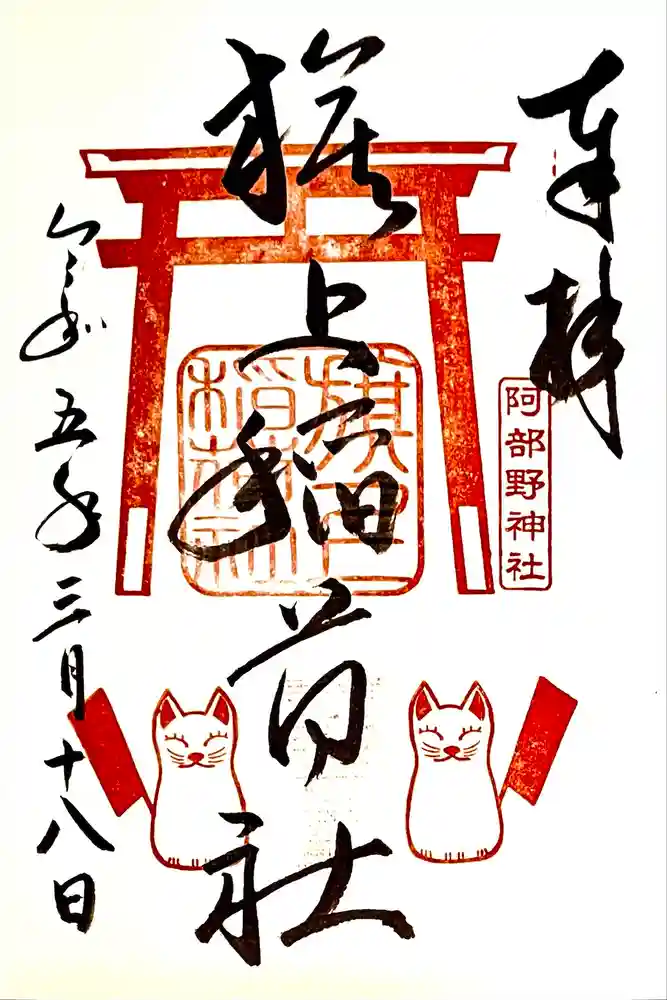 奉拝
阿部野神社
旗上稲荷社
旗上稲荷社
令和五年三月十八日